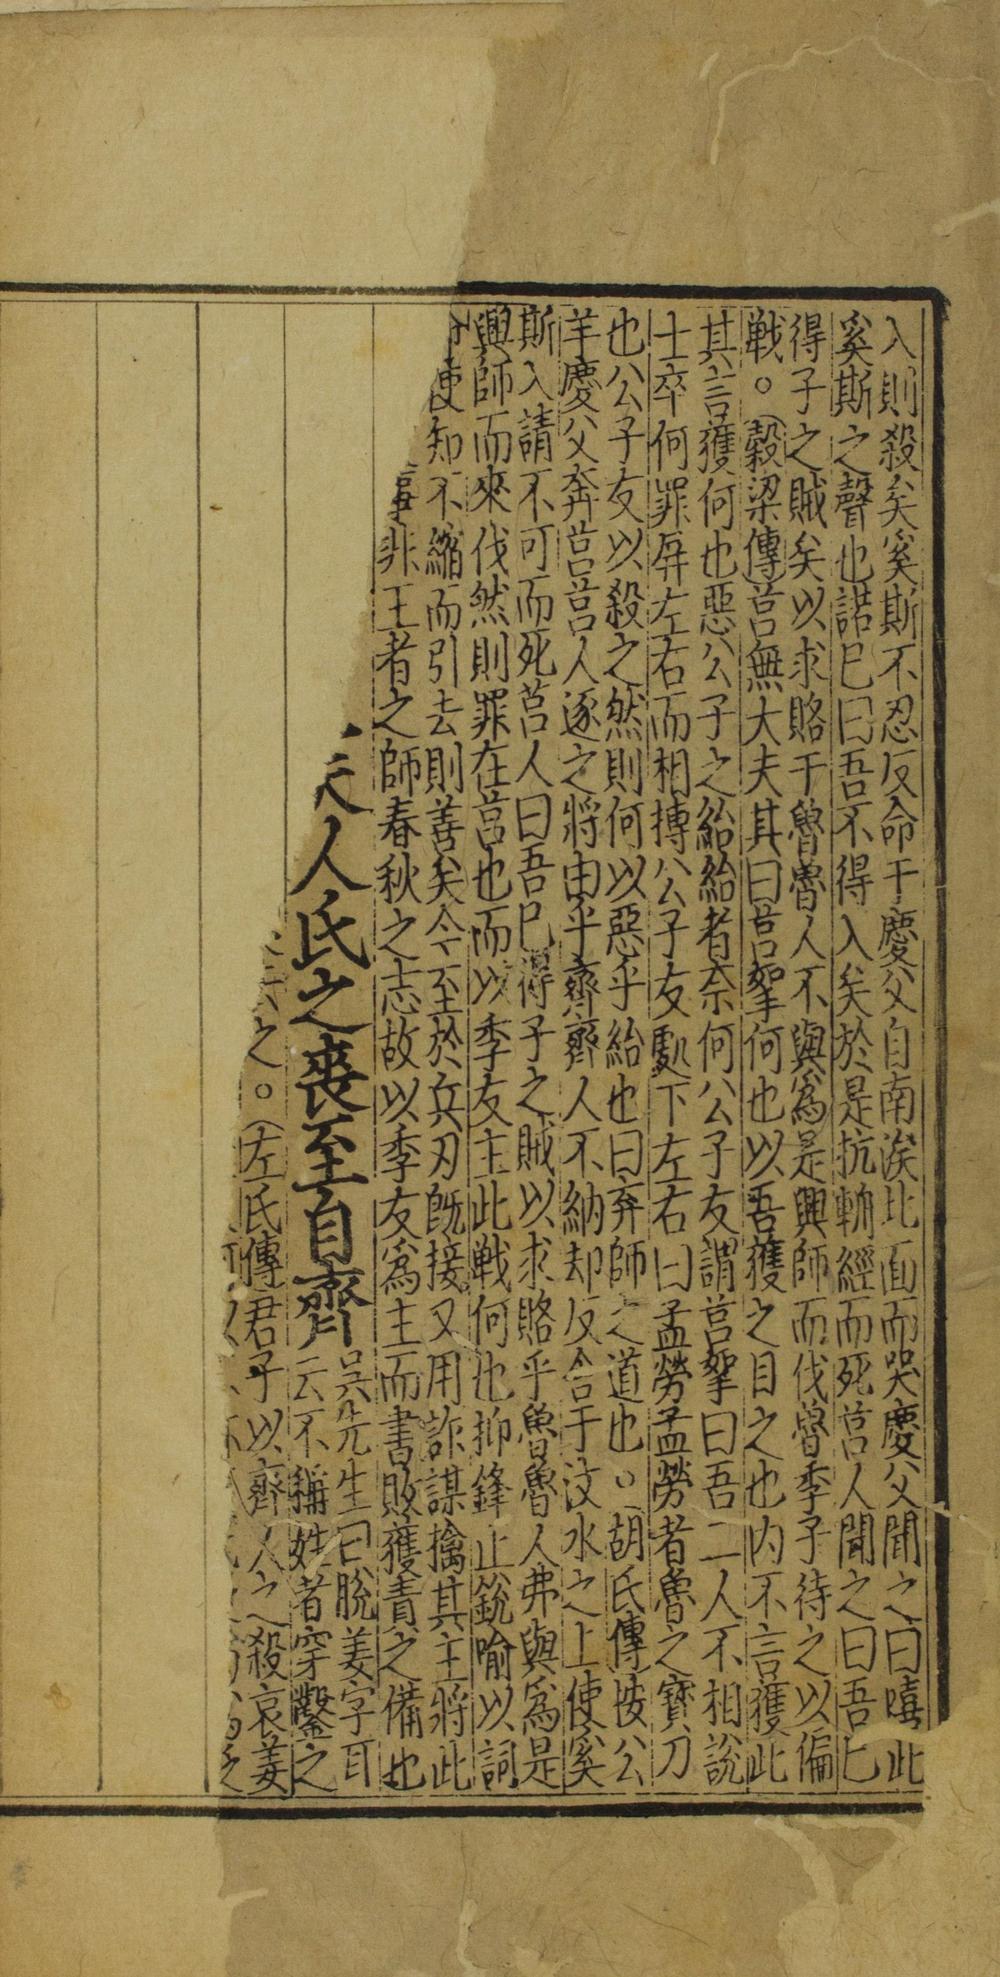 入則殺矣奚斯不忍反命于慶父自南涘北面而哭慶父聞之曰嘻此
奚斯之聲也諾已曰吾不得入矣於是抗輈經而死莒人聞之曰吾已
得子之賊矣以求賂于魯魯人不與爲是興師而伐魯季子待之以偏
戦。穀梁傳莒無大夫其曰莒挐何也以吾獲之目之也内不言獲此
其言獲何也惡公子之紿紿者柰何公子友謂莒挐曰吾二人不相說
士卒何罪屏左右而相摶公子友䖏下左右曰孟勞孟勞者魯之寶刀
也公子友以殺之然則何以惡乎紿也曰弃師之道也。胡氏傳按公
羊慶父奔莒莒人逐之將由乎齊齊人不納却反舍于汶水之上使奚
斯入請不可而死莒人曰吾已得子之賊以求賂乎魯魯人弗與爲是
興師而來伐然則罪在莒也而以季友主此戦何也抑鋒止銳喻以詞
使知不縮而引去則善矣今至於兵刃旣接又用詐謀擒其主將此
事非王者之師春秋之志故以季友爲主而書敗獲責之備也
夫人氏之喪至自齊吳先生曰脫姜字耳
云不稱姓者穿鑿之
之。左氏傳君子以齊人之殺哀姜